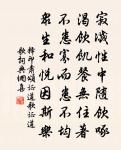 寂滅性中隨飲啄
渴飲飢餐無住著
不患寡而患不均
衆生和悅因斯樂
釋印肅頌證道歌證道
歌詞典網喜